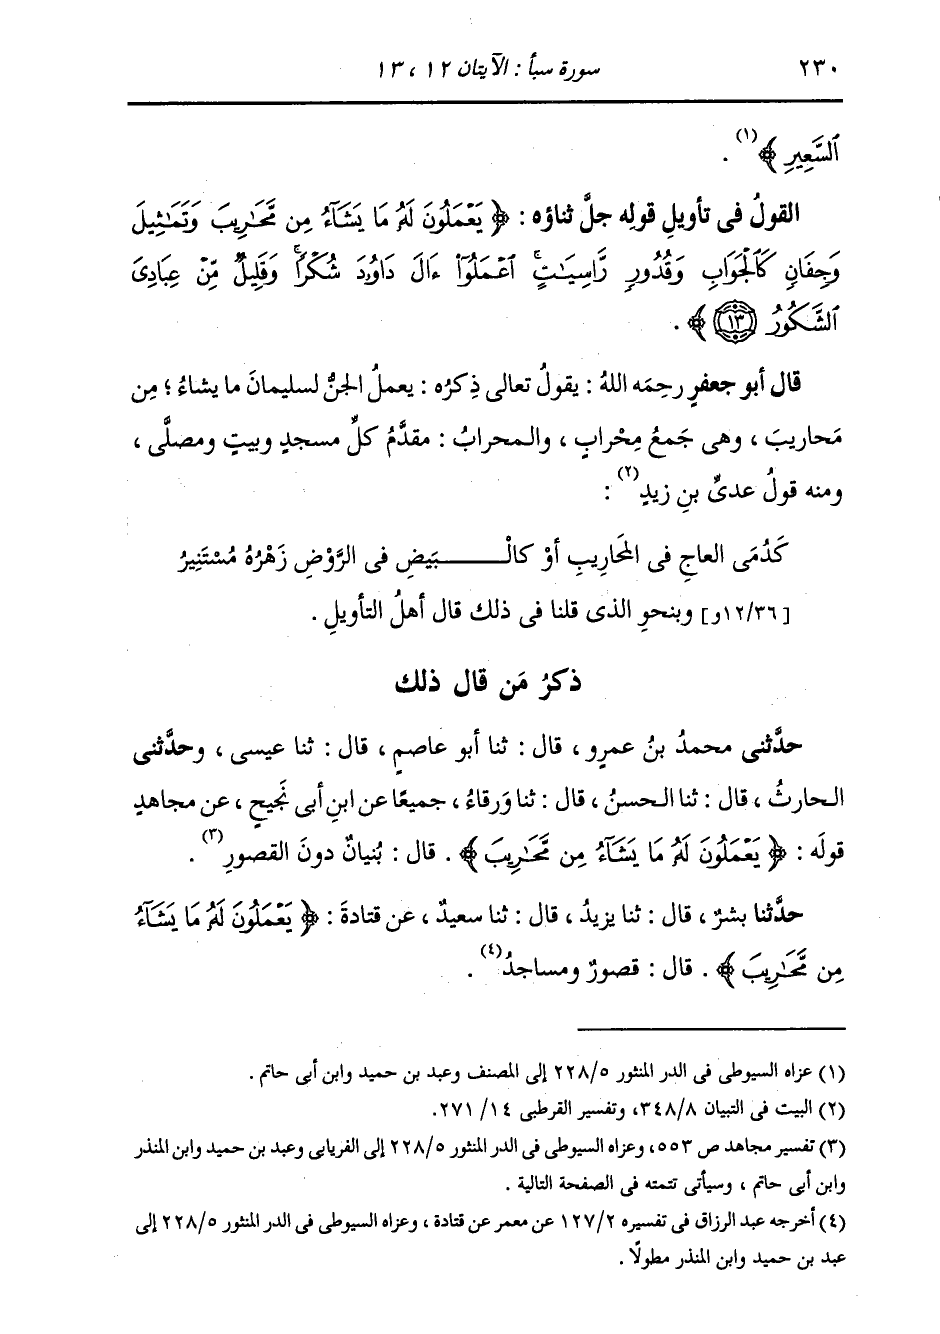 ٢٣٠ سورة سبأ : الآيتان ١٢ ، ١٣
ٱلسَّعِيرِ ﴾(١) .
القولُ فى تأويلِ قولِه جلَّ ثناؤه : ﴿ يَعْمَلُونَ لَهُۥ مَا يَشَآءُ مِن مَّحَٰرِيبَ وَتَمَٰثِيلَ
وَجِفَانٍ كَٱلْجَوَابِ وَقُدُورٍ رَّاسِيَٰتٍۚ ٱعْمَلُوٓا۟ ءَالَ دَاوُۥدَ شُكْرًاۚ وَقَلِيلٌ مِّنْ عِبَادِىَ
ٱلشَّكُورُ ﴿١٣﴾ ﴾ .
قال أبو جعفرٍ رحِمَه اللهُ : يقولُ تعالى ذِكرُه : يعملُ الجنُّ لسليمانَ ما يشاءُ ؛ مِن
مَحاريبَ ، وهى جَمعُ مِحْرابٍ ، والمحرابُ : مقدَّمُ كلِّ مسجدٍ وبيتٍ ومصلَّى ،
ومنه قولُ عدىِّ بنِ زيدٍ(٢) :
كَدُمَى العاجِ فى المَحَارِيبِ أوْ كالْـــــبَيَضِ فى الرَّوْضِ زَهْرُهُ مُسْتَنِيرُ
[١٢/٣٦و] وبنحوِ الذى قلنا فى ذلك قال أهلُ التأويلِ .
ذكرُ مَن قال ذلك
حدَّثنى محمدُ بنُ عمرٍو ، قال : ثنا أبو عاصمٍ ، قال : ثنا عيسى ، وحدَّثنى
الحارثُ ، قال : ثنا الحسنُ ، قال : ثنا وَرقاءُ ، جميعًا عن ابنِ أبى نَجيحٍ ، عن مجاهدٍ
قولَه : ﴿ يَعْمَلُونَ لَهُۥ مَا يَشَآءُ مِن مَّحَٰرِيبَ ﴾ . قال : بُنيانٌ دونَ القصورِ(٣) .
حدَّثنا بشرٌ ، قال : ثنا يزيدُ ، قال : ثنا سعيدٌ ، عن قتادةَ : ﴿ يَعْمَلُونَ لَهُۥ مَا يَشَآءُ
مِن مَّحَٰرِيبَ ﴾ . قال : قصورٌ ومساجدُ(٤) .
(١) عزاه السيوطى فى الدر المنثور ٢٢٨/٥ إلى المصنف وعبد بن حميد وابن أبى حاتم .
(٢) البيت فى التبيان ٣٤٨/٨، وتفسير القرطبى ١٤/ ٢٧١.
(٣) تفسير مجاهد ص ٥٥٣، وعزاه السيوطى فى الدر المنثور ٢٢٨/٥ إلى الفريابى وعبد بن حميد وابن المنذر
وابن أبى حاتم ، وسيأتى تتمته فى الصفحة التالية .
(٤) أخرجه عبد الرزاق فى تفسيره ١٢٧/٢ عن معمر عن قتادة ، وعزاه السيوطى فى الدر المنثور ٢٢٨/٥ إلى
عبد بن حميد وابن المنذر مطولًا .